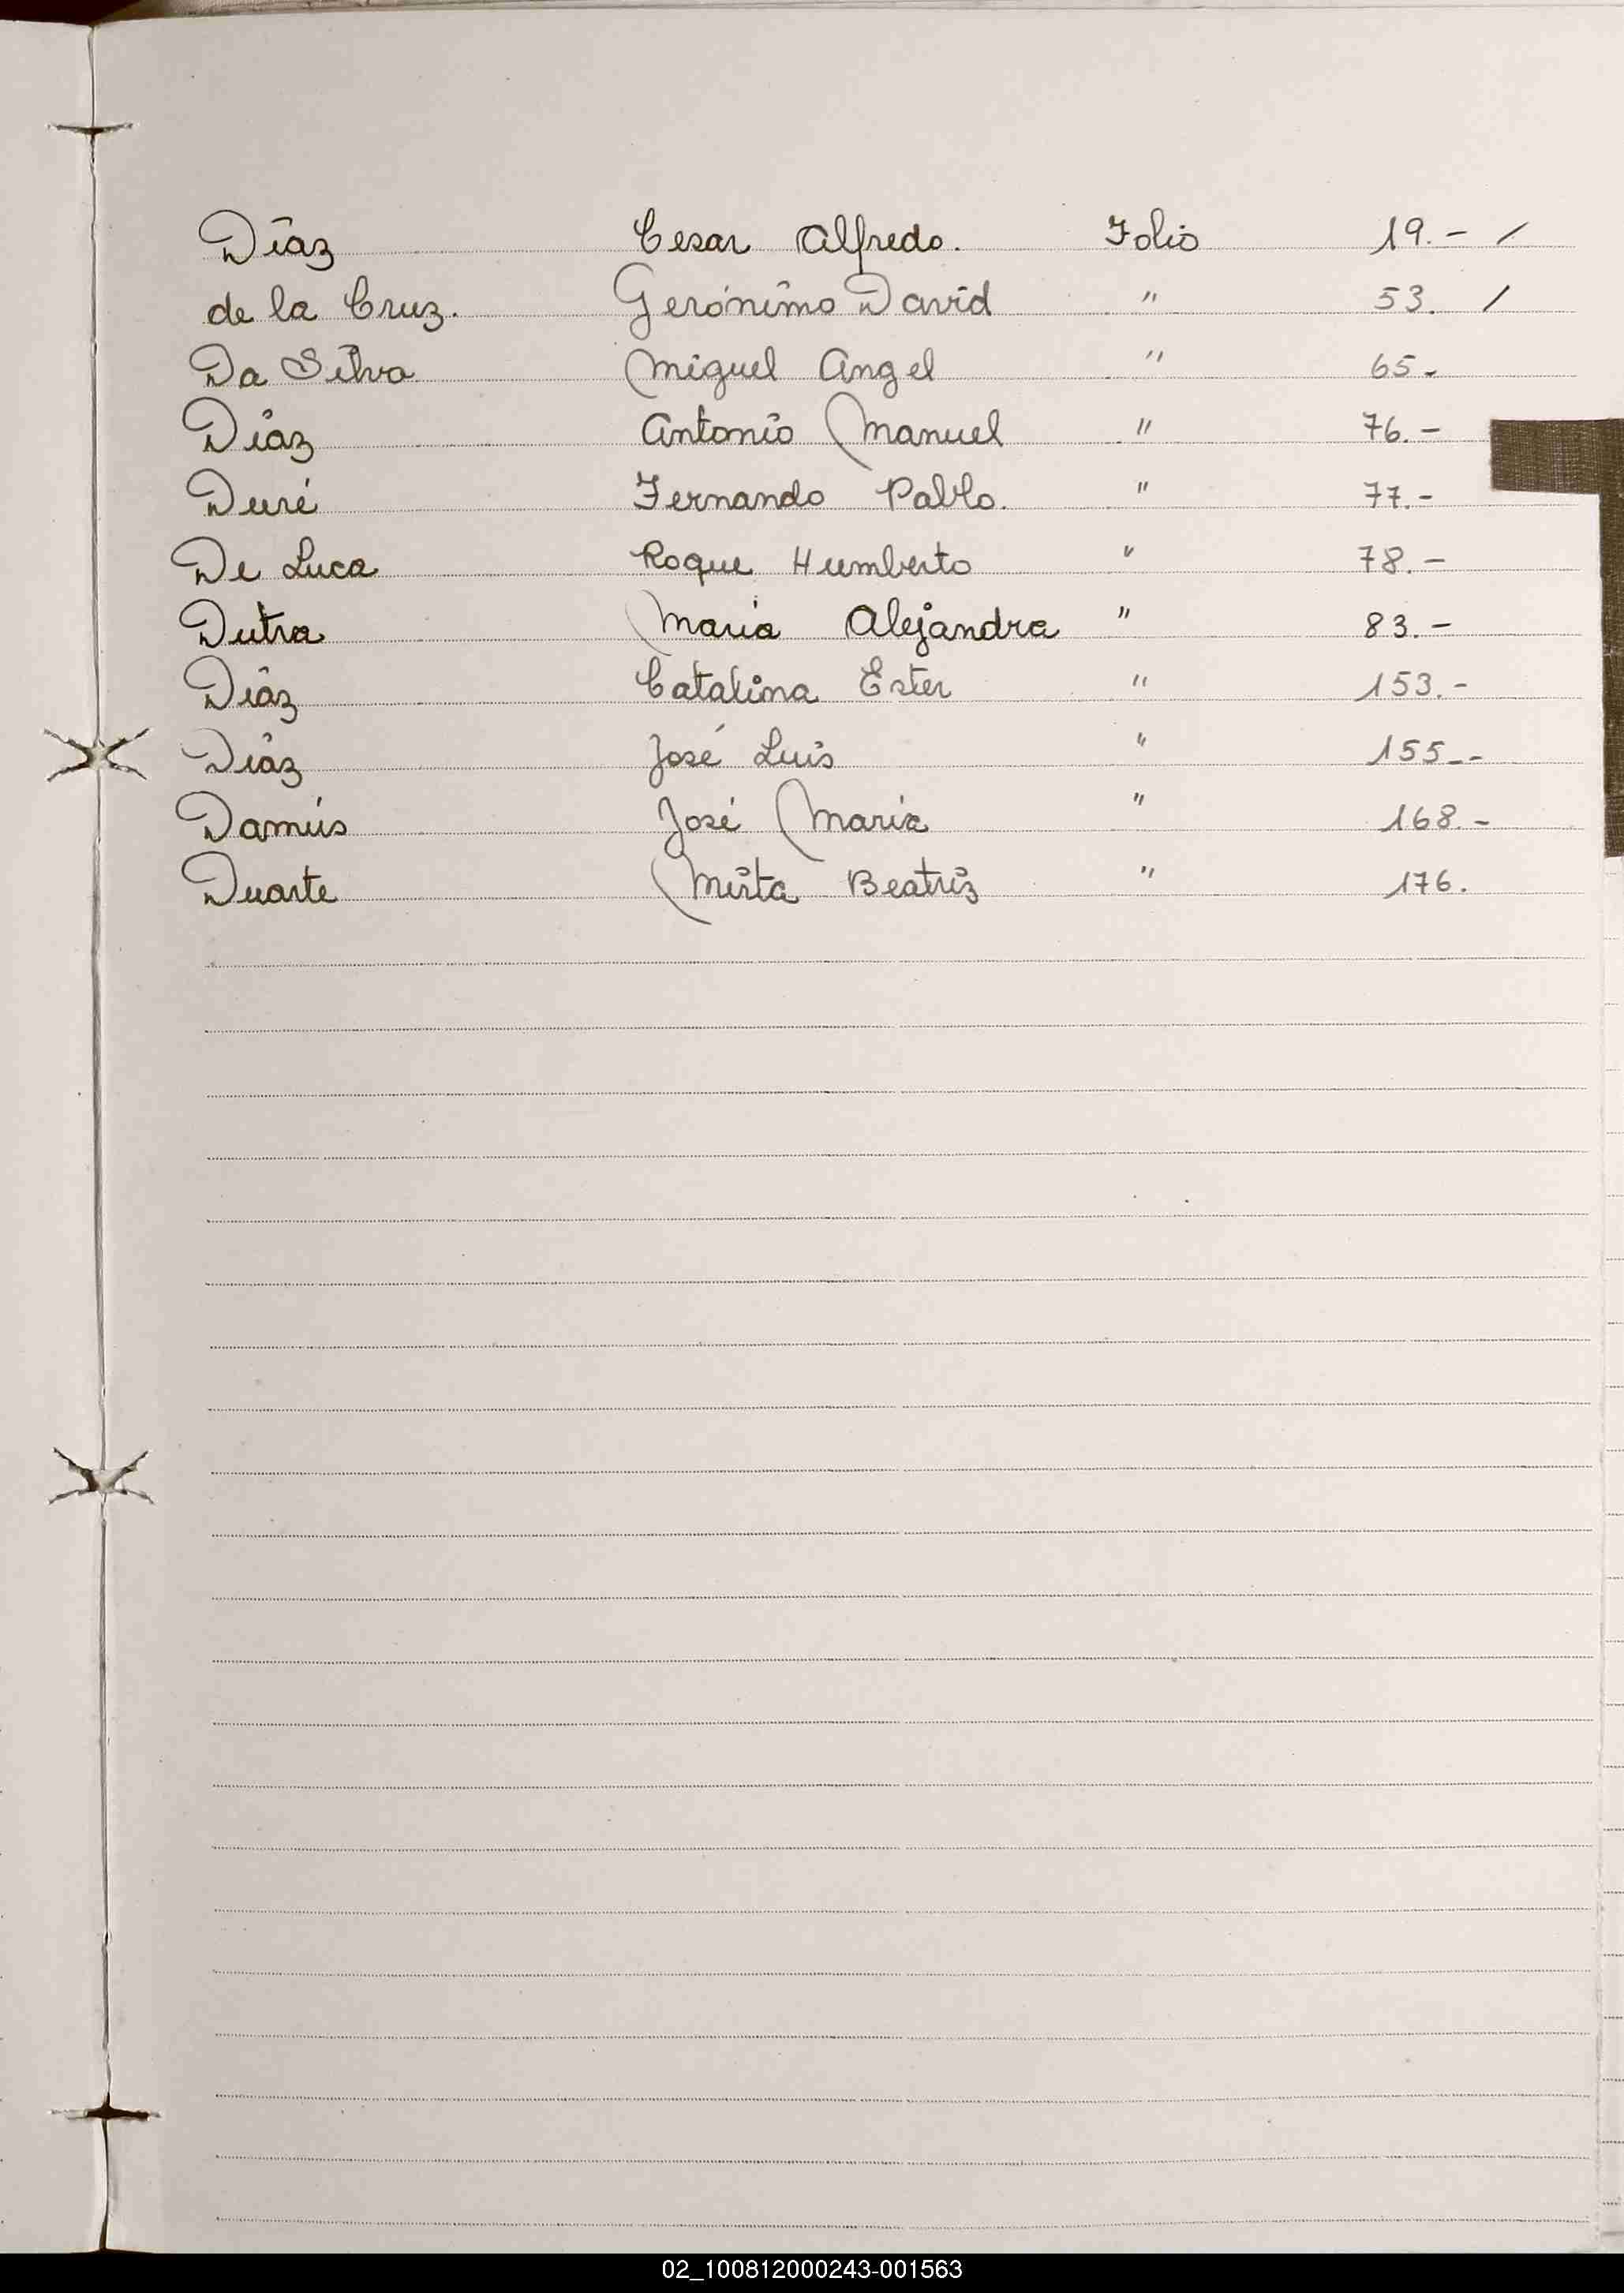 Díaz Cesar Alfredo. Folio 19.- /
de la Cruz. Gerónimo David " 53. /
Da Silva Miguel Angel " 65-
Díaz Antonio Manuel " 76.-
Duré Fernando Pablo. " 77.-
De Luca Roque Humberto " 78.-
Dutra Maria Alejandra " 83.-
Díaz Catalina Ester " 153.-
Díaz José Luis " 155--
Damús José Maria " 168.-
Duarte Mirta Beatriz " 176.
02_100812000243-001563